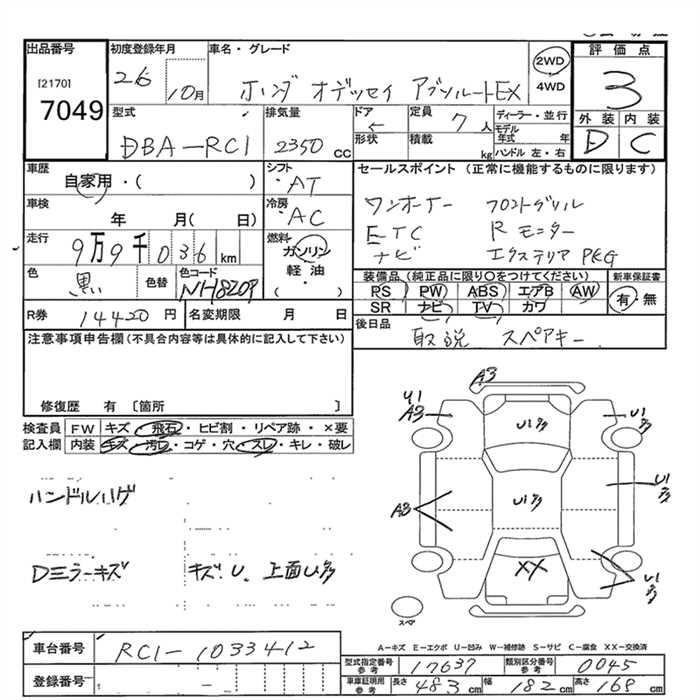 出品番号
[2170]
7049
初度登録年月
26
10月
車名・グレード
ホンダ オデッセイ アブソルートEX
2WD
4WD
評価点
3
外装 内装
D C
型式
DBA-RC1
排気量
2350 CC
ドア
形状
定員
7人
積載
kg
ディーラー・並行
モデル年式 年
ハンドル 左・右
車歴
自家用・( )
シフト
・AT
セールスポイント (正常に機能するものに限ります)
ワンオーナー フロントグリル
ETC Rモニター
ナビ エクステリア PKG
車検
年 月( 日)
冷房
・AC
走行
9万9千036km
燃料
ガソリン
軽油
・( )
色
黒
色替
色コード
NH820P
装備品(純正品に限り〇をつけてください)
PS PW ABS エアB AW
SR ナビ TV カワ
新車保証書
有・無
R券
14420円
名変期限 月 日
後日品
取説 スペアキー
注意事項申告欄(不具合内容等は具体的に記入して下さい)
修復歴 有 〔箇所 〕
検査員記入欄
FW キズ・飛石・ヒビ割・リペア跡・×要
内装 キズ・汚レ・コゲ・穴・スレ・キレ・破レ
ハンドルハゲ
Dミラーキズ キズ.U. 上面U多
A3
U1
A3
U1多
U1多
A3
U1多
U1多
XX
U1多
スペア
A-キズ E-エクボ U-凹み W-補修跡 S-サビ C-腐食 XX-交換済
車台番号
RC1-1033412
登録番号
型式指定番号 参考
17637
類別区分番号 参考
0045
車庫証明用 参考
長さ 483cm 幅 182cm 高さ 168cm